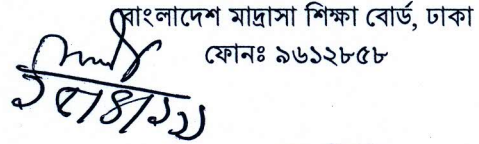 বাংলাদেশ মাদ্রাসা শিক্ষা বোর্ড, ঢাকা
ফোনঃ ৯৬১২৮৫৮